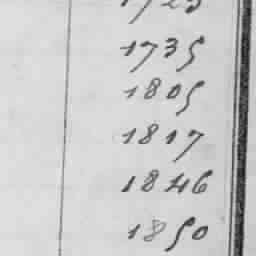 1735
1805
1817
1846
1850